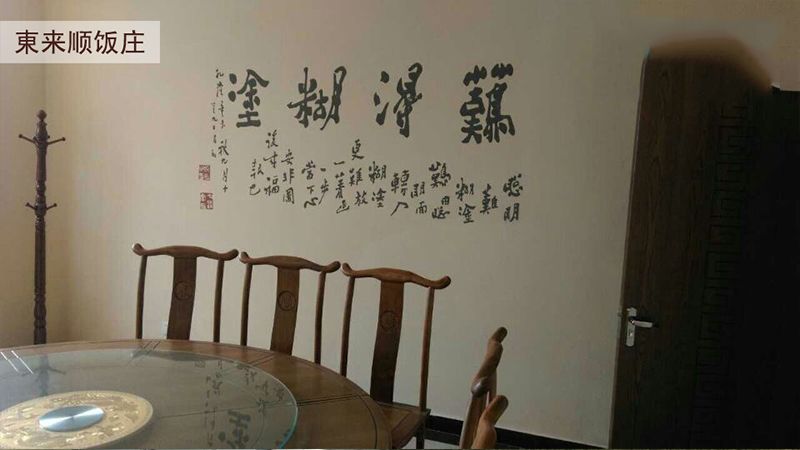 東来顺饭庄
難得糊塗
聰明
難
糊塗
難由聰
明而
轉入
糊塗
更難放
一著退
一步
當下心
安非圖
後来福
報也
乾隆辛未秋九月十